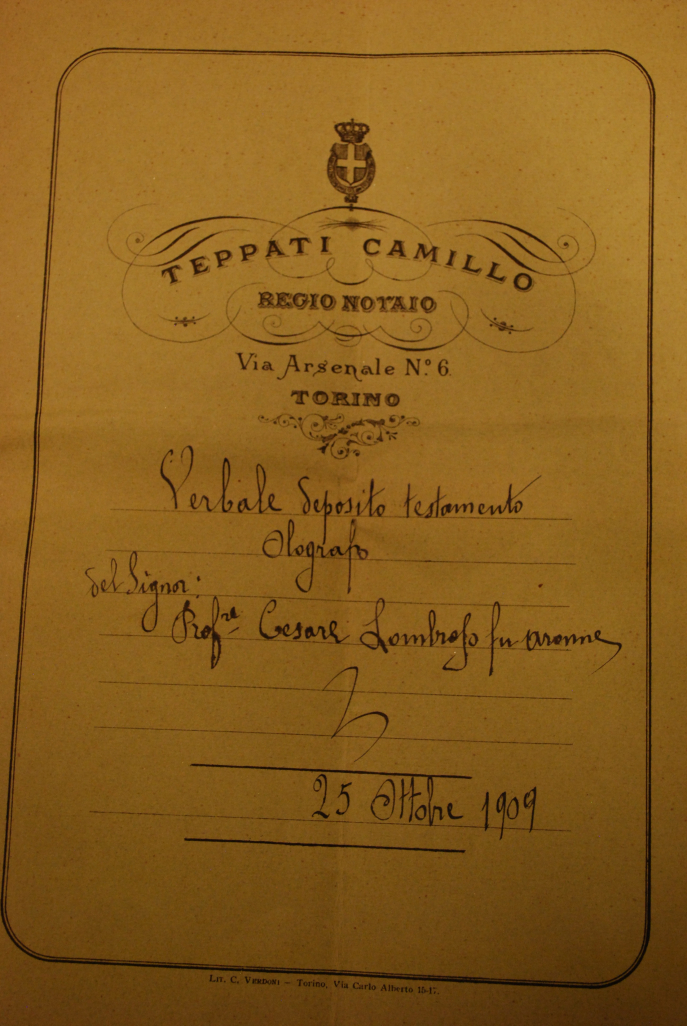 TEPPATI CAMILLO
REGIO NOTAIO
Via Arsenale N.º 6.
TORINO
Verbale deposito testamento
Olografo
del Signor:
Prof.re Cesare Lombroso fu Aronne
25 Ottobre 1909
Lit. C. Verdori – Torino, Via Carlo Alberto